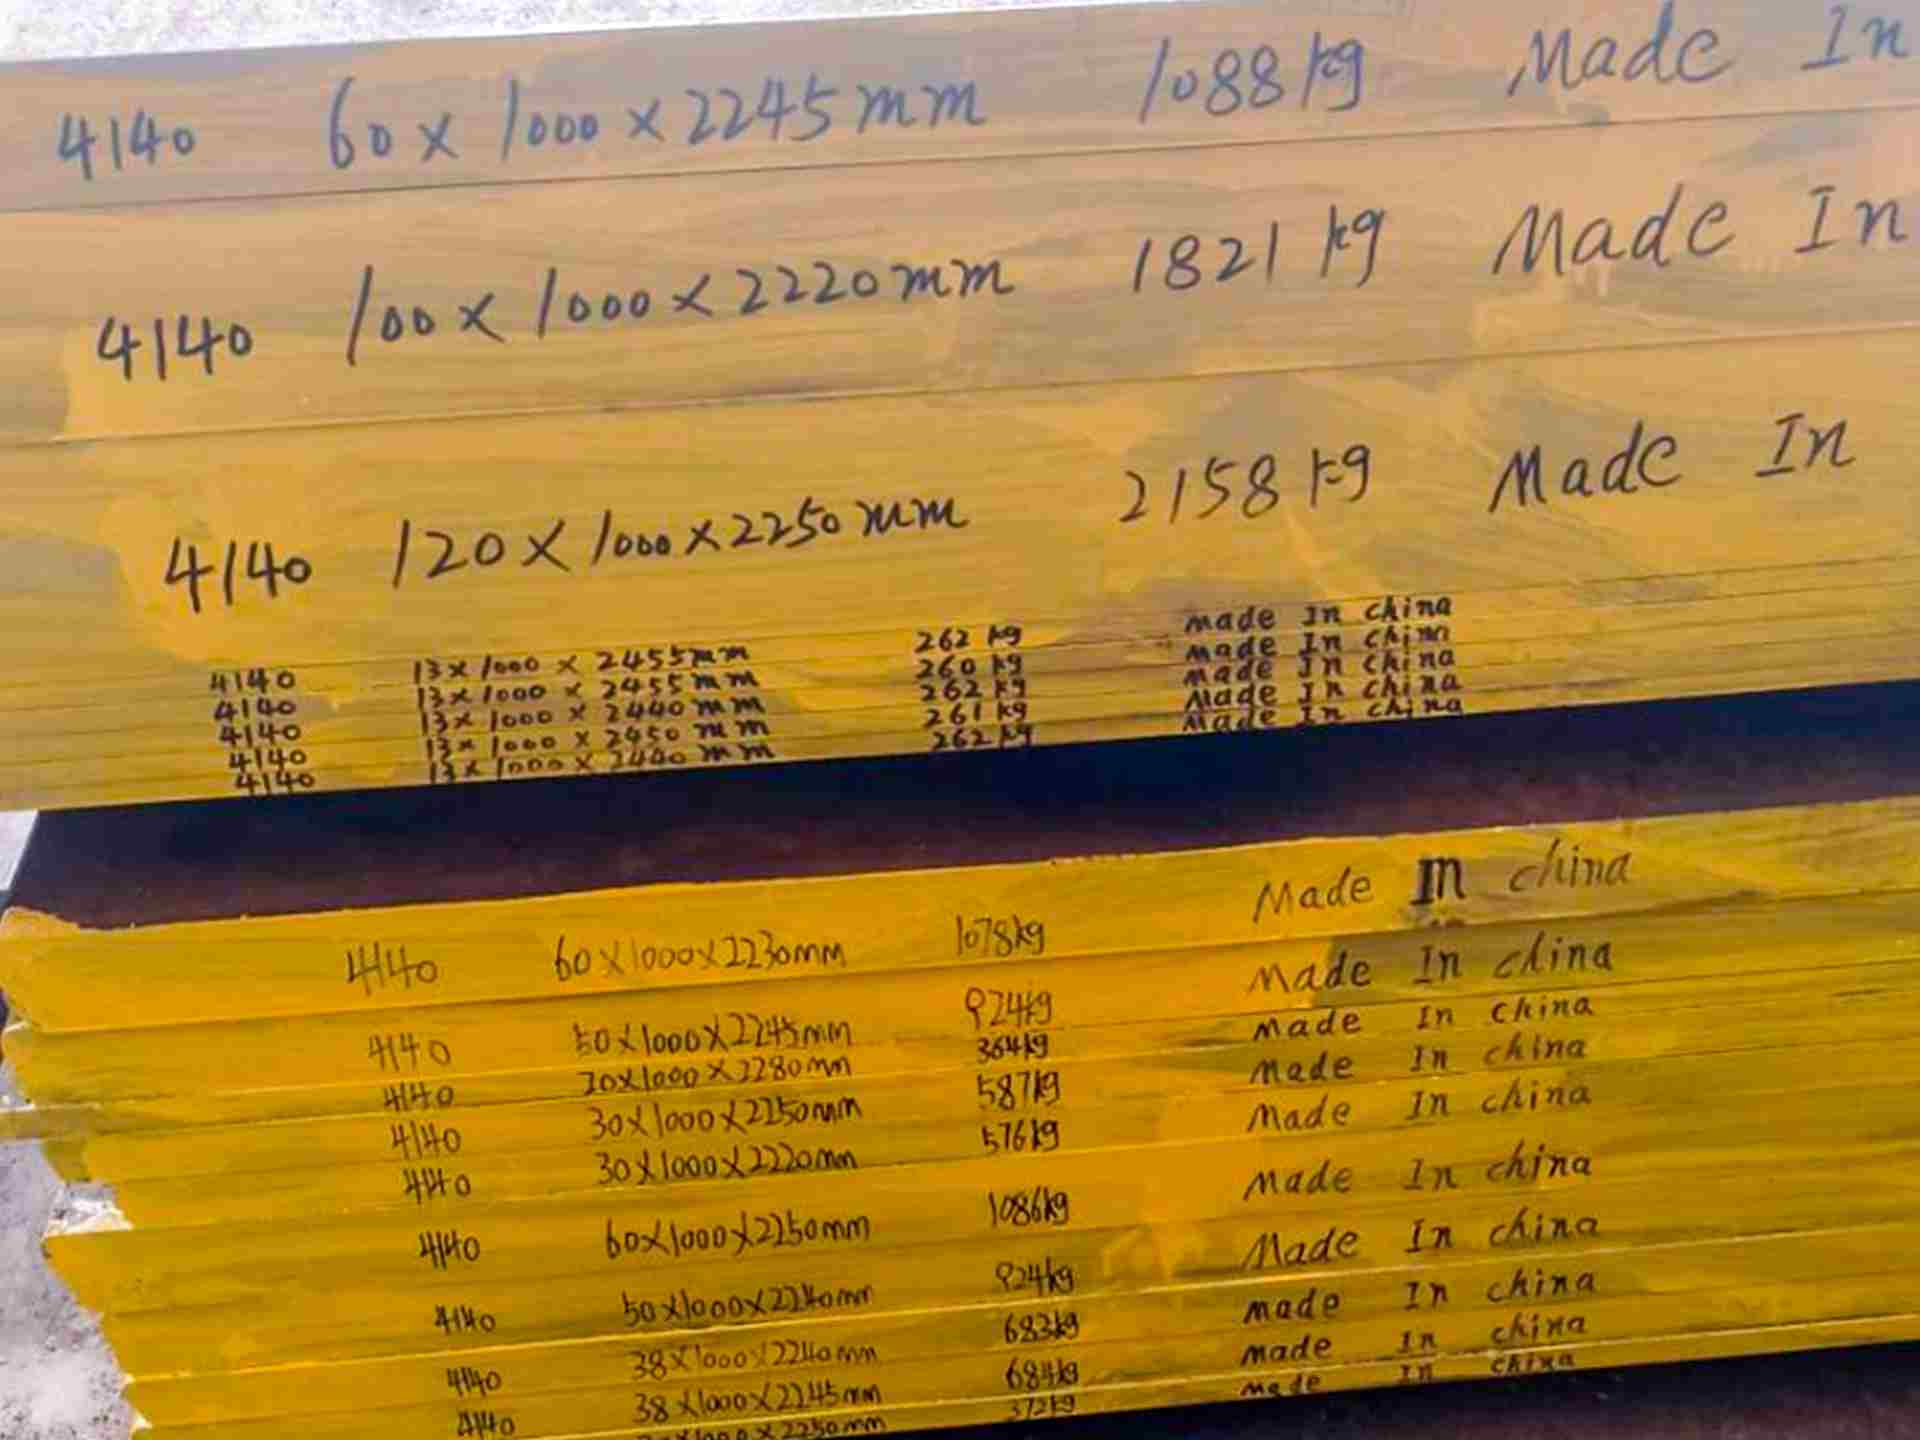 4140 60 x 1000 x 2245mm 1088kg Made In
4140 100 x 1000 x 2220mm 1821kg Made In
4140 120 x 1000 x 2250mm 2158kg Made In
4140 13 x 1000 x 2455mm 262kg made In china
4140 13 x 1000 x 2455mm 260kg made In china
4140 13 x 1000 x 2440mm 262kg made In china
4140 13 x 1000 x 2450mm 261kg Made In china
4140 13 x 1000 x 2440mm 262kg Made In china
4140 60 x 1000 x 2230mm 1078kg Made In china
4140 50 x 1000 x 2245mm 924kg Made In china
4140 20 x 1000 x 2280mm 364kg Made In china
4140 30 x 1000 x 2250mm 587kg Made In china
4140 30 x 1000 x 2220mm 576kg Made In china
4140 60 x 1000 x 2250mm 1086kg Made In china
4140 50 x 1000 x 2240mm 924kg Made In china
4140 38 x 1000 x 2240mm 683kg made In china
4140 38 x 1000 x 2245mm 684kg made In china
x 1000 x 2250mm 372kg made In china